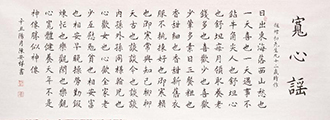 寬心謠
日出東海落西山愁也
一天喜也一天遇事不
鑽牛角尖人也舒坦心
也舒坦每月領取養老
錢多也喜歡少也喜歡
少葷多素日三餐粗也
香甜細也香甜新舊衣
裳不挑揀好也御寒賴
也御寒常與知己聊聊
天古也談談今也談談
內孫外孫同樣看兒也
心歡女也心歡全家老
少互慰勉貧也相安富
也相安早晚操勞勤鍛
煉忙也樂觀閒也樂觀
心寬體健養天年不是
神僊勝似神僊